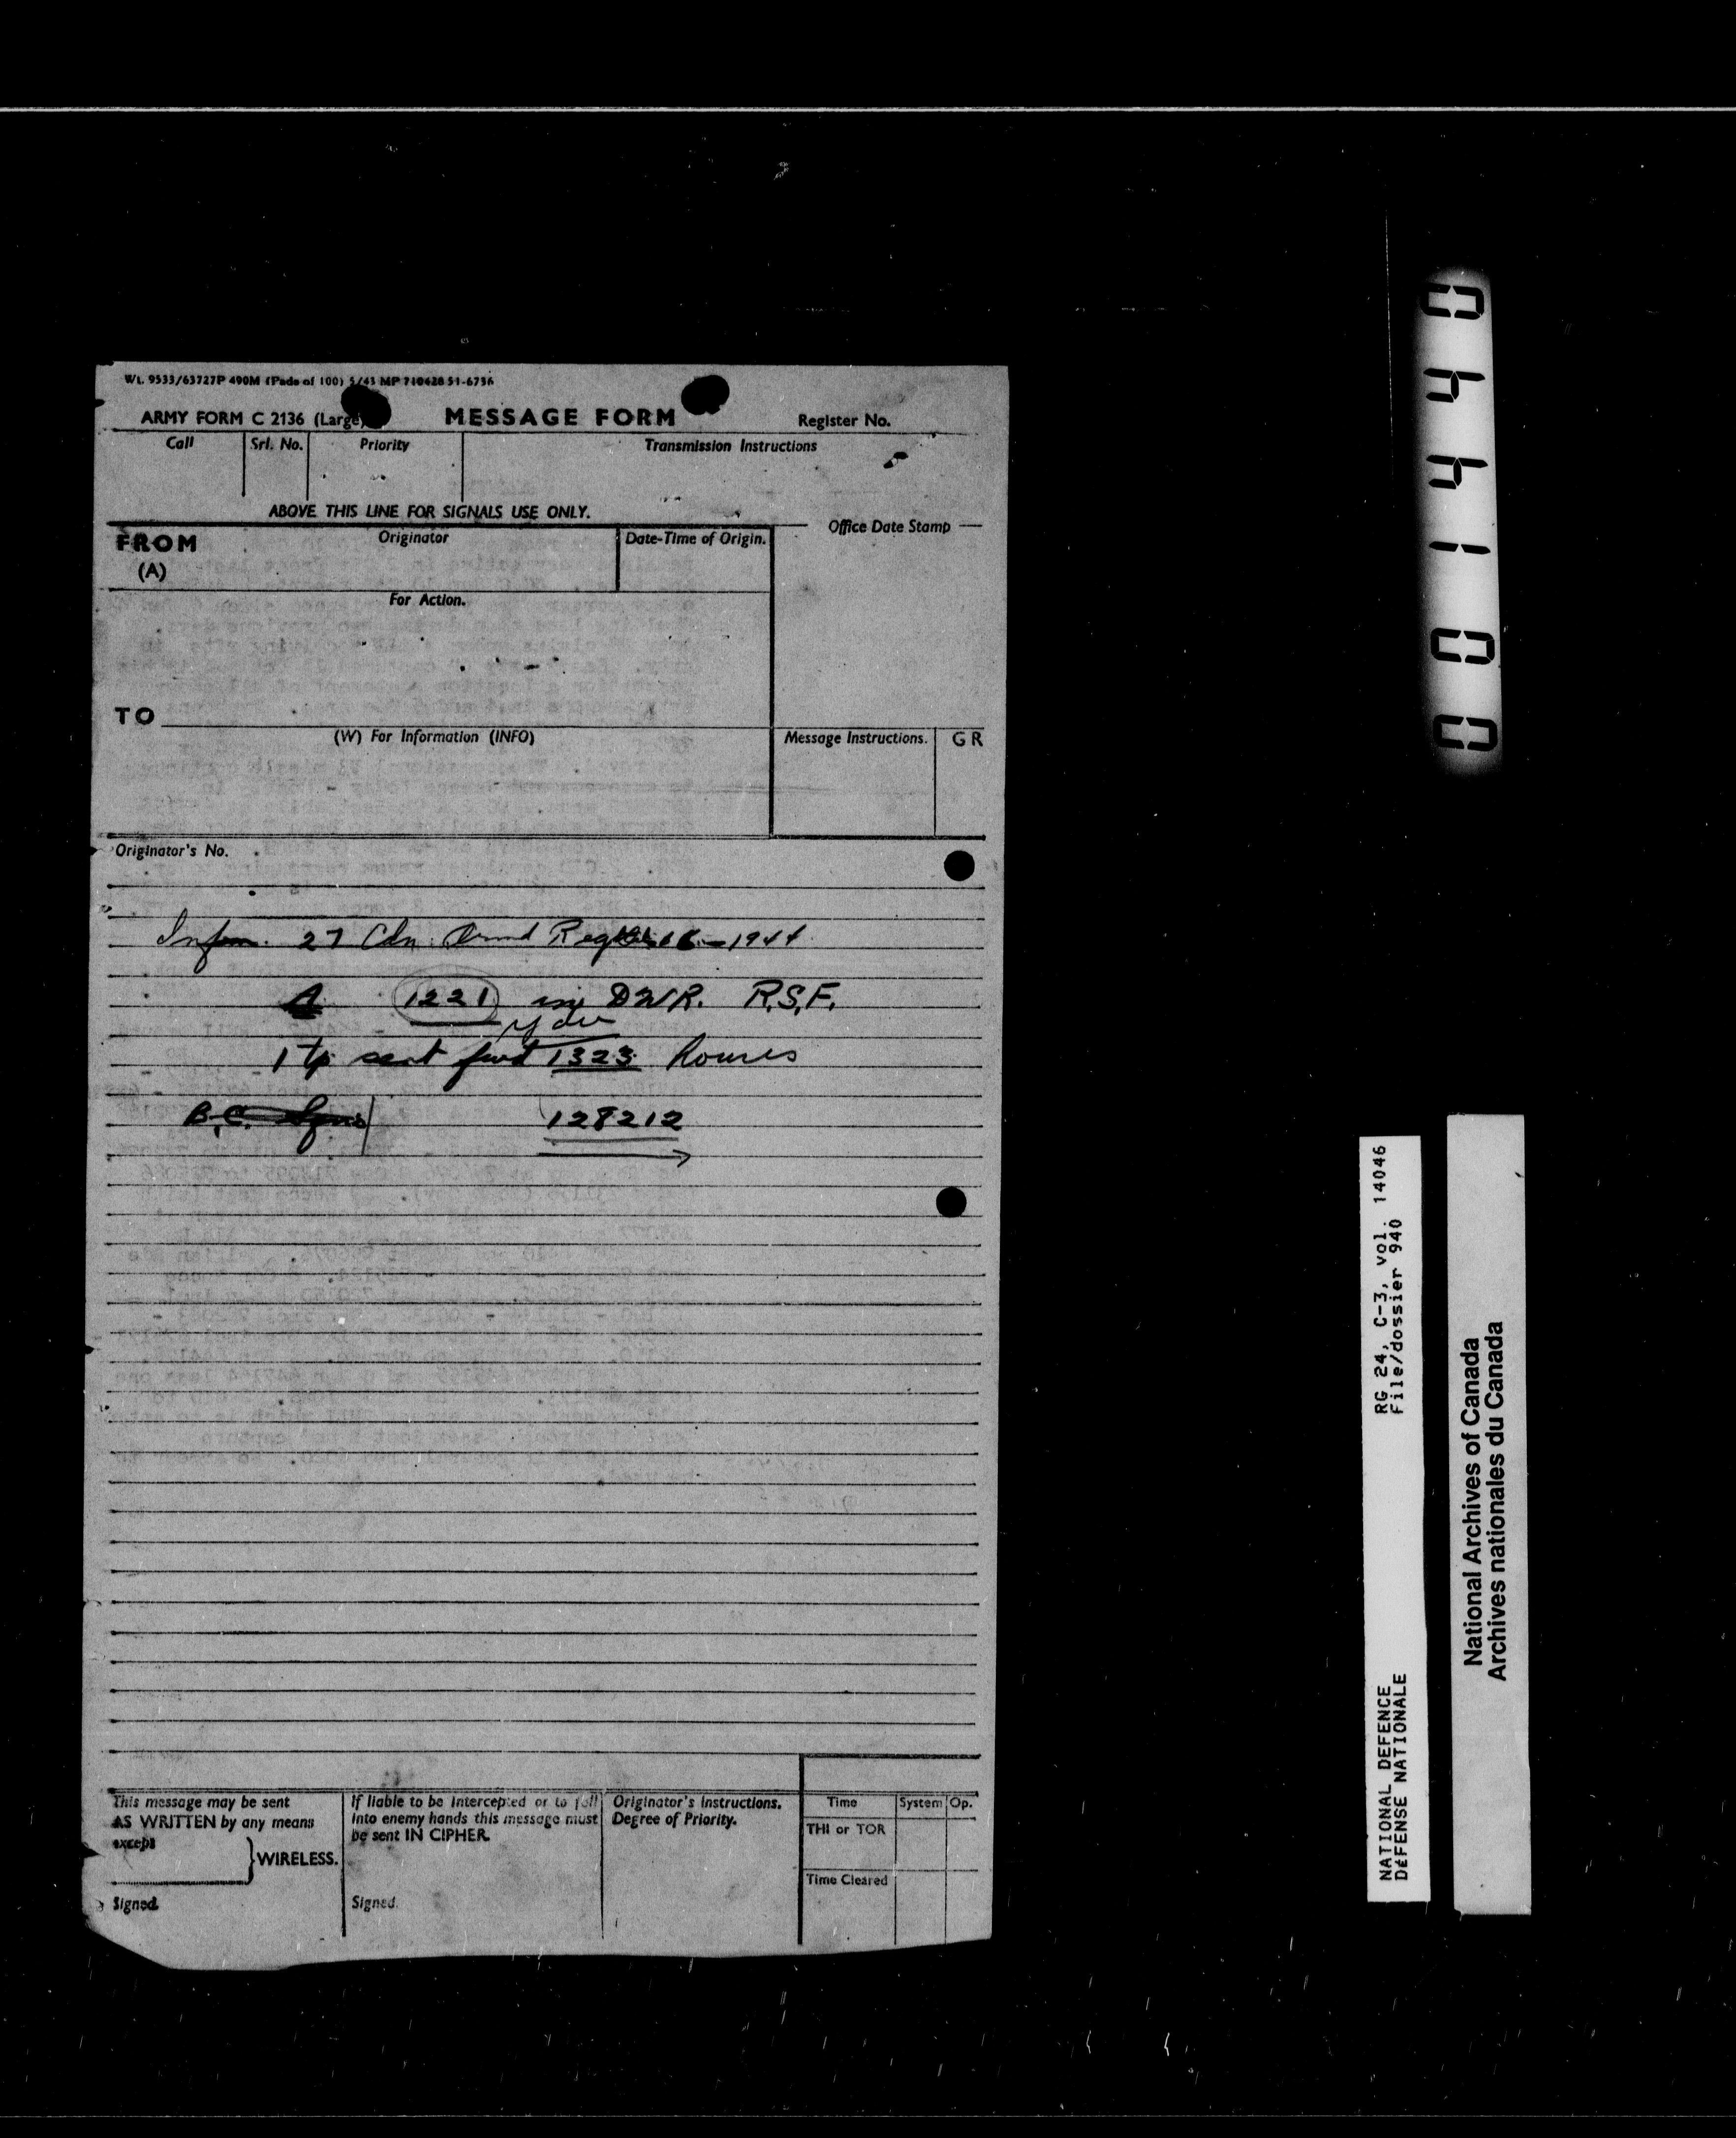 Wt. 9533/63727P 490M (Pads of 100) 5/43 MP 710428 51-6736
ARMY FORM C 2136 (Large)
MESSAGE FORM
Register No.
Call
Srl. No.
Priority
Transmission Instructions
ABOVE THIS LINE FOR SIGNALS USE ONLY.
FROM
(A)
Originator
Date-Time of Origin.
Office Date Stamp
For Action.
TO
(W) For Information (INFO)
Message Instructions.
G R
Originator's No.
27 Cdn. Armd Regt 1944
A 1221 in DWR. R.S.F.
1 tp sent fwd 1323 hours
B.C. Sqns
128212
This message may be sent
AS WRITTEN by any means
except
WIRELESS.
Signed.
If liable to be intercepted or to fall
into enemy hands this message must
be sent IN CIPHER.
Signed.
Originator's Instructions.
Degree of Priority.
Time
System
Op.
THI or TOR
Time Cleared
0 4 4 1 0 0
RG 24, C-3, vol. 14046
File/dossier 940
NATIONAL DEFENCE
DÉFENSE NATIONALE
National Archives of Canada
Archives nationales du Canada